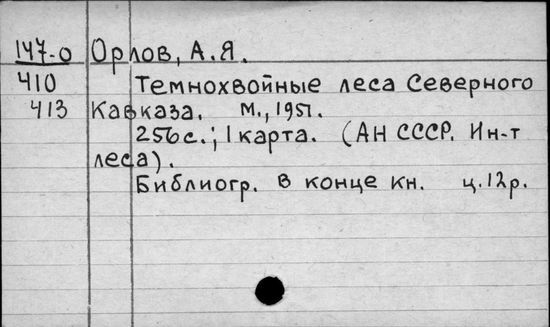 147-о Орлов, А.Я.
410 Темнохвойные леса Северного
413 Кавказа. М., 1951.
256с.; 1 карта. (АН СССР. Ин-т
леса).
Библиогр. в конце кн. ц.12р.